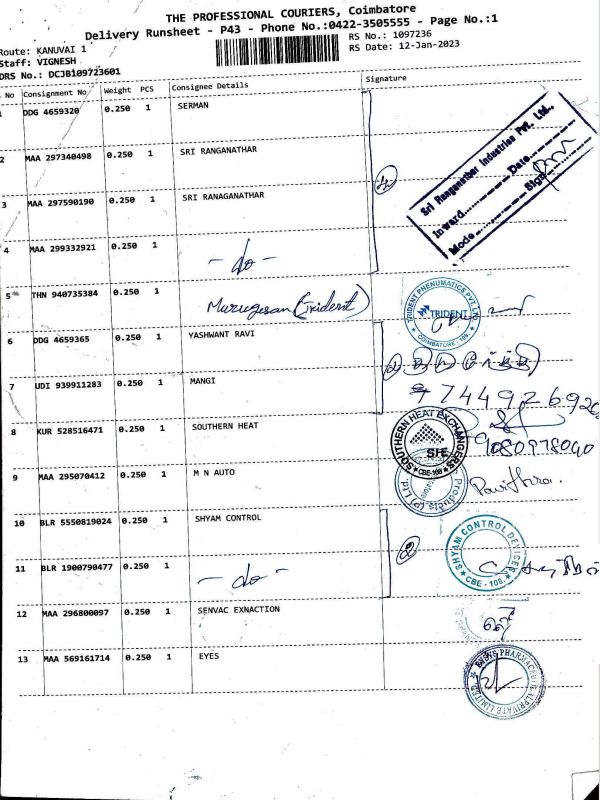 THE PROFESSIONAL COURIERS, Coimbatore
Delivery Runsheet - P43 - Phone No.:0422-3505555 - Page No.:1
Route: KANUVAI 1
Staff: VIGNESH
DRS No.: DCJB109723601
RS No.: 1097236
RS Date: 12-Jan-2023
No Consignment No Weight PCS Consignee Details Signature
1 DDG 4659320 0.250 1 SERMAN
2 MAA 297340498 0.250 1 SRI RANGANATHAR
3 MAA 297590190 0.250 1 SRI RANAGANATHAR
4 MAA 299332921 0.250 1 - do -
Sri Ranganathar Industries Pvt. Ltd.,
Inward........Date........
Mode........Sign........
5 THN 940735384 0.250 1 Murugesan (Trident)
TRIDENT PNEUMATICS PVT. L
TRIDENT
COIMBATORE - 108.
6 DDG 4659365 0.250 1 YASHWANT RAVI
2
7 UDI 939911283 0.250 1 MANGI
9744926920
8 KUR 528516471 0.250 1 SOUTHERN HEAT
SOUTHERN HEAT EXCHANGERS
SHE
CBE-108
9080978040
9 MAA 295070412 0.250 1 M N AUTO
Products (P) Ltd
Pavithra.
10 BLR 5550819024 0.250 1 SHYAM CONTROL
2
SHYAM CONTROL DEVICES
CBE - 108.
11 BLR 1900790477 0.250 1 - do -
12 MAA 296800097 0.250 1 SENVAC EXNACTION
13 MAA 569161714 0.250 1 EYES
PRIVATE LIMITED